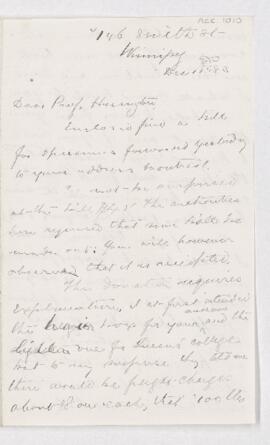 ACC. 1013
146 Smith St
Winnipeg
Dec
Dear Prof. Harrington
Enclosed find a bill
for specimens forwarded yesterday
to your address Montreal.
not be surprised
at the bill, for the authorities
here required that some bill be
made out. You will however
observe that it is receipted
The donation requires
explanation, I at first intended
this box for your museum and the
one for Queens College
but to my surprise they told me
there would be freight charges
about on each, that 100 lbs